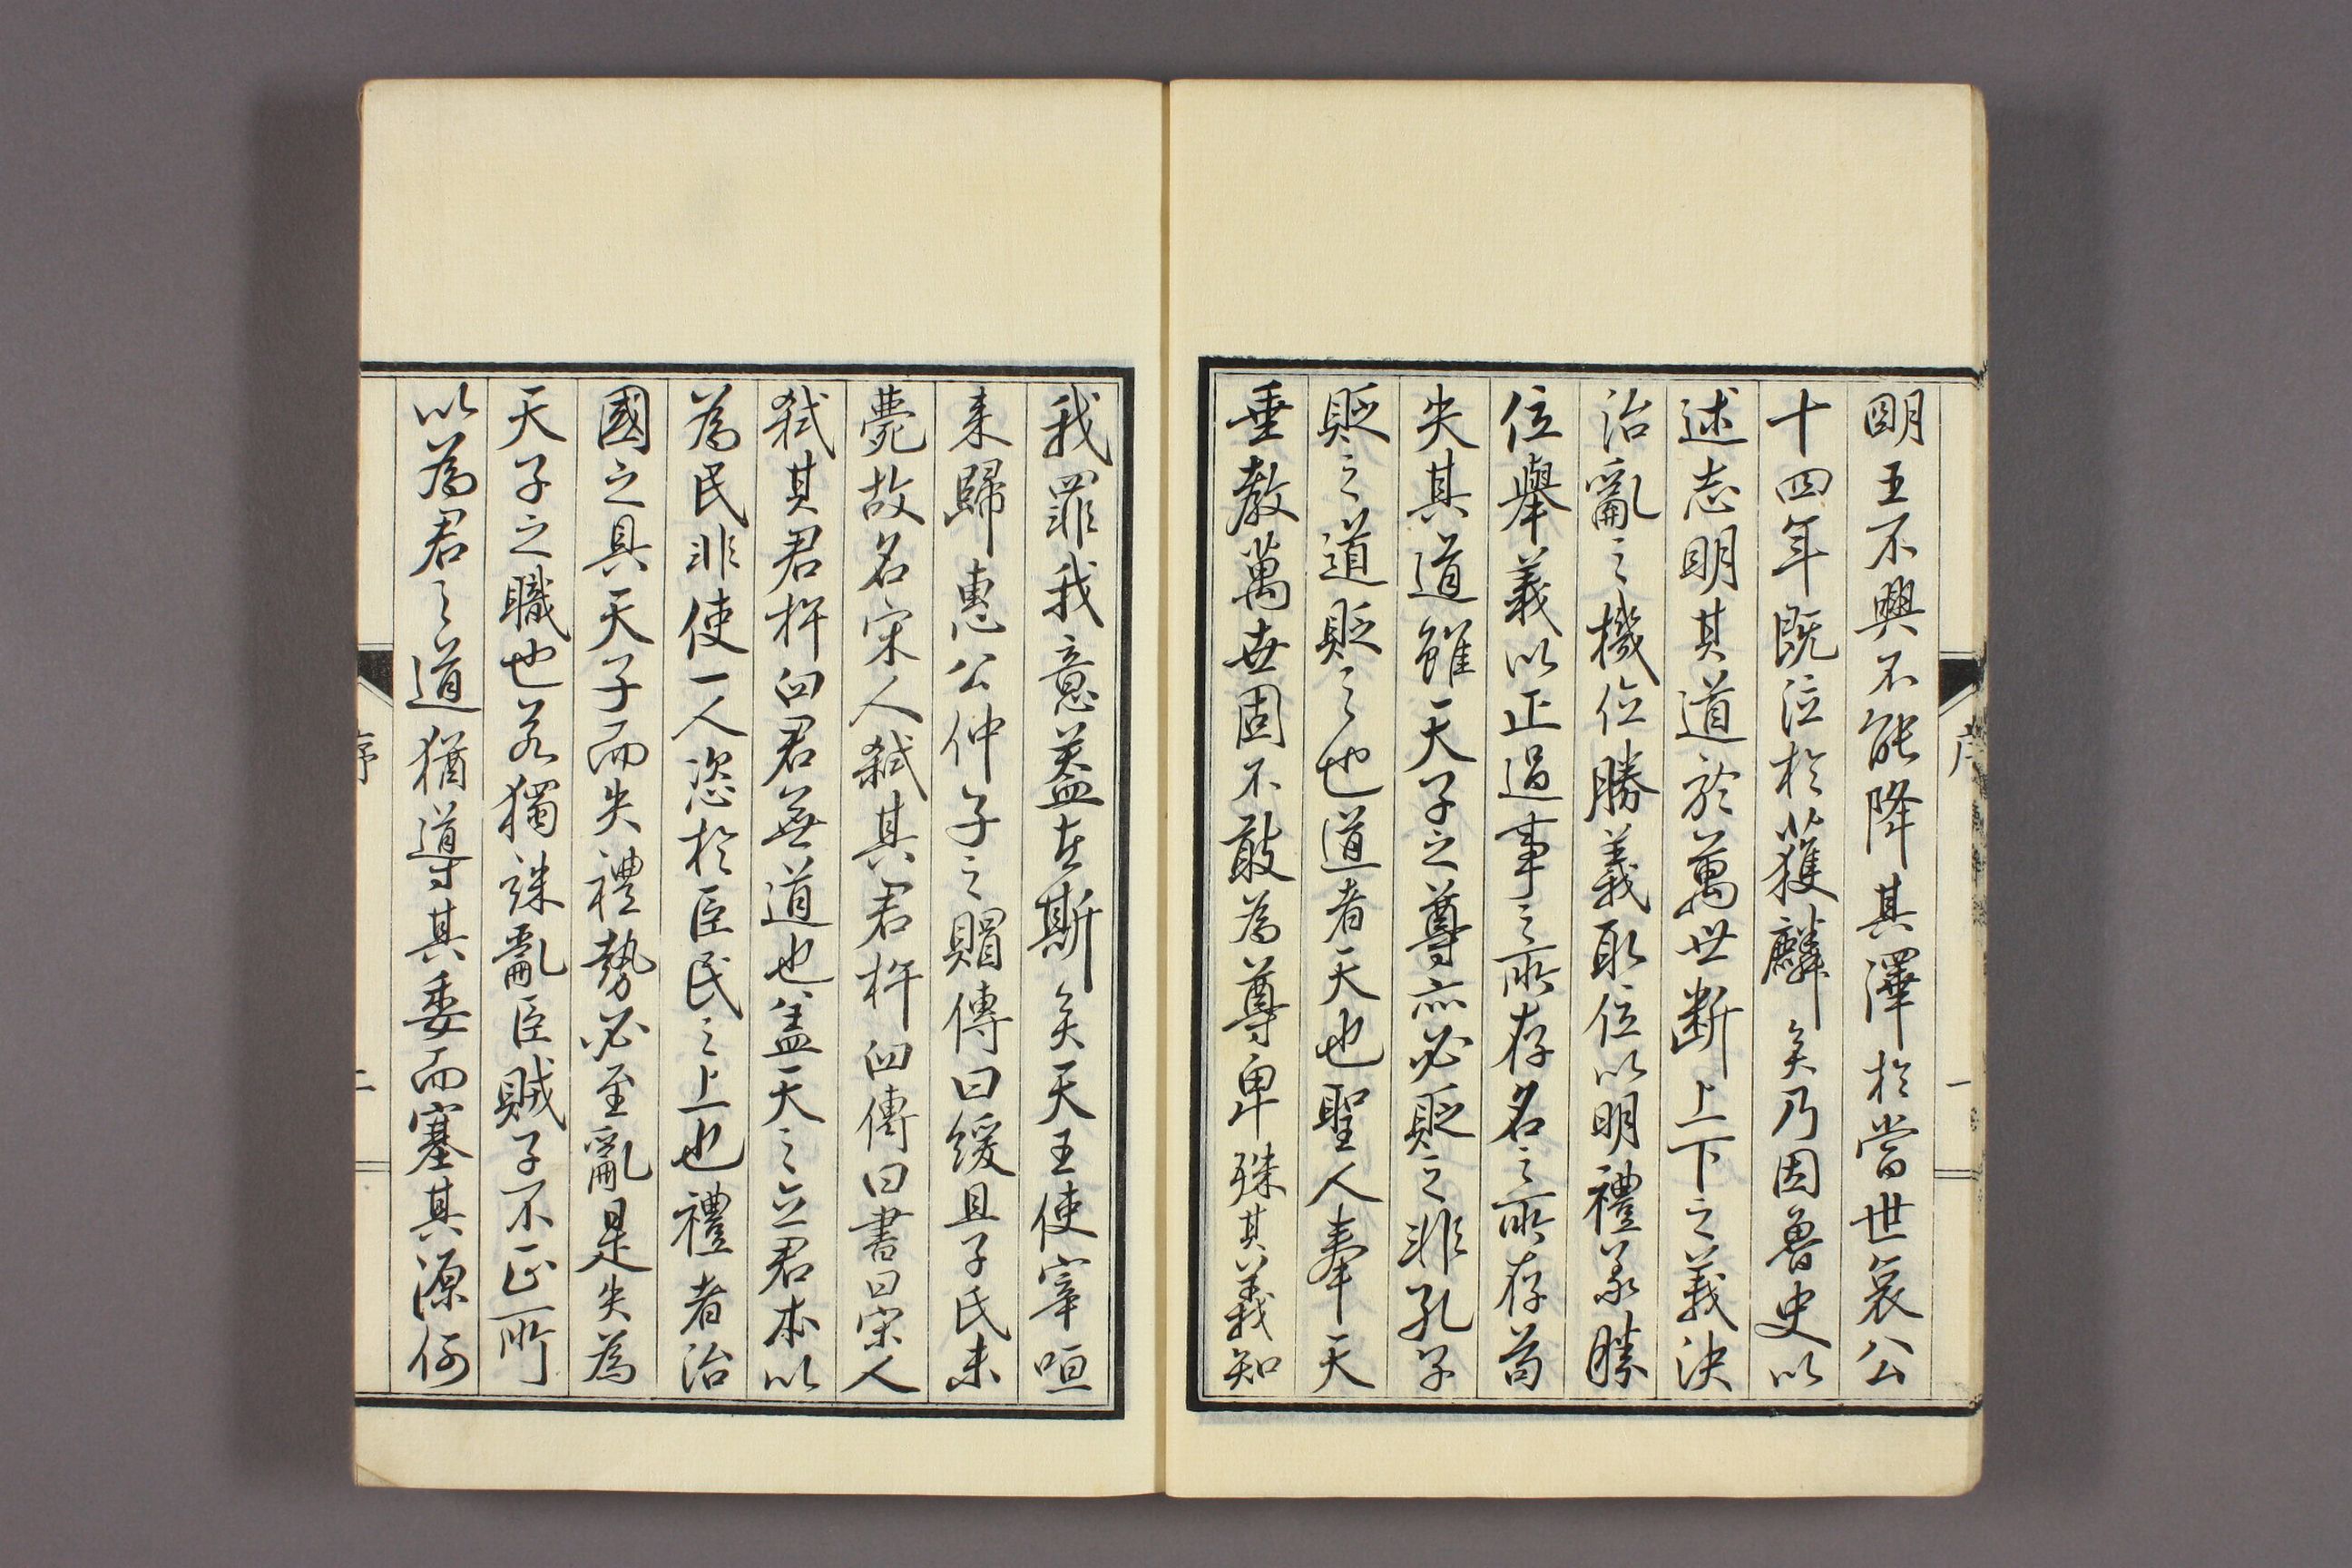 明王不興不能降其澤於當世哀公
十四年既泣於獲麟矣乃因魯史以
述志明其道於萬世断上下之義決
治亂之機位勝義取位以明禮義勝
位舉義以正過事之所存名之所存苟
失其道雖天子之尊亦必貶之非孔子
貶之道貶之也道者天也聖人奉天
垂教萬世固不敢為尊卑殊其義知
序
一
我罪我意蓋在斯矣天王使宰咺
来歸惠公仲子之賵傳曰緩且子氏未
薨故名宋人弒其君杵臼傳曰書曰宋人
弒其君杵臼君無道也盖天之立君本以
為民非使一人恣於臣民之上也禮者治
國之具天子而失禮勢必至亂是失為
天子之職也若獨誅亂臣賊子不正所
以為君之道猶導其委而塞其源何
序
二